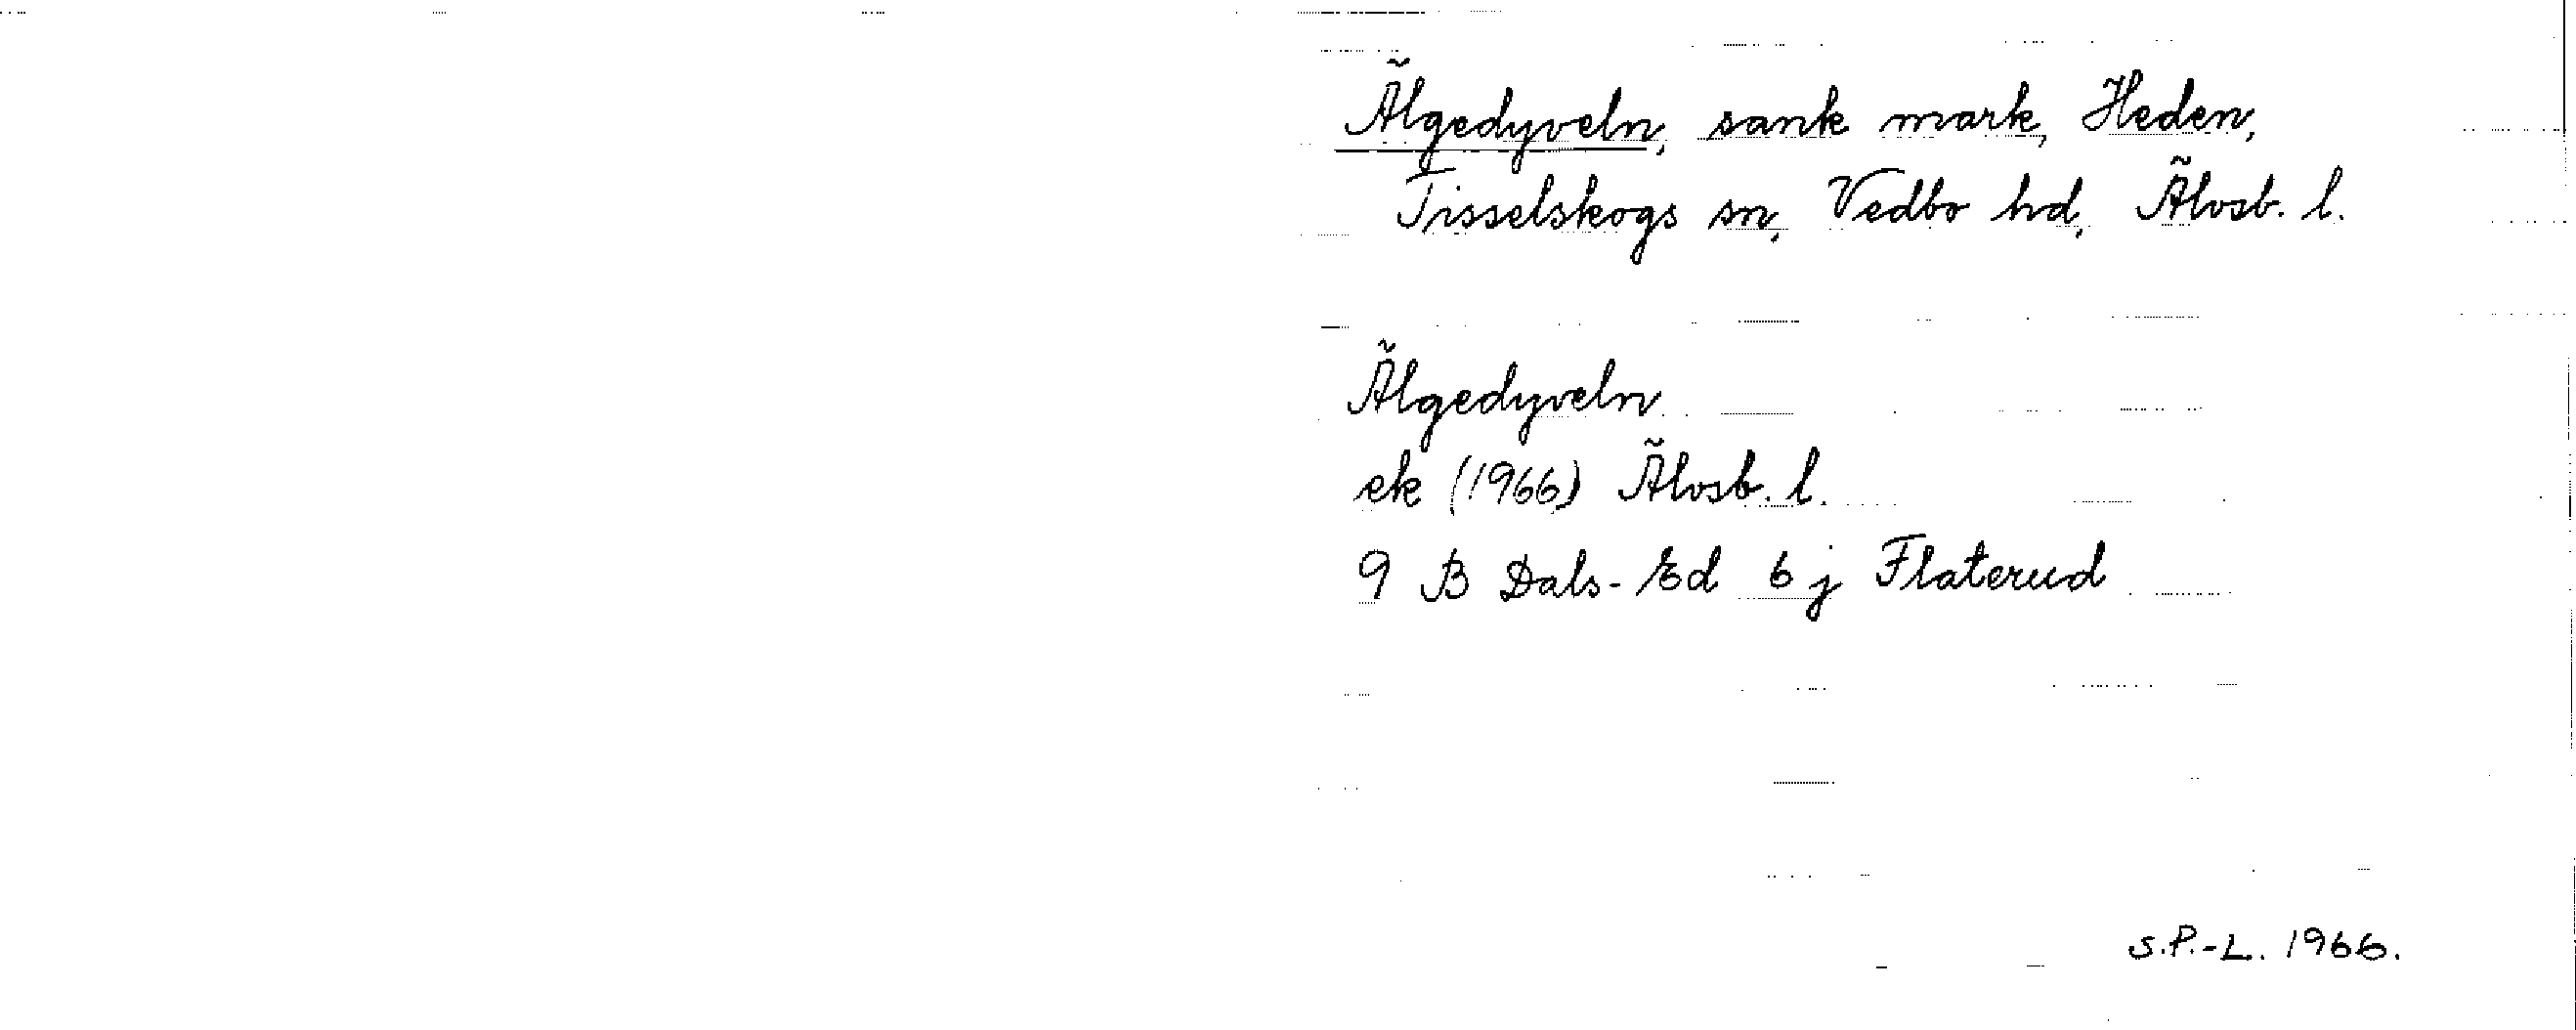 Älgedyveln, sank mark, Heden,
Tisselskogs sn, Vedbo hd, Älvsb. l.
Älgedyveln
ek (1966) Älvsb. l.
9 B Dals-Ed 6 j Flaterud
S.P.-L. 1966.